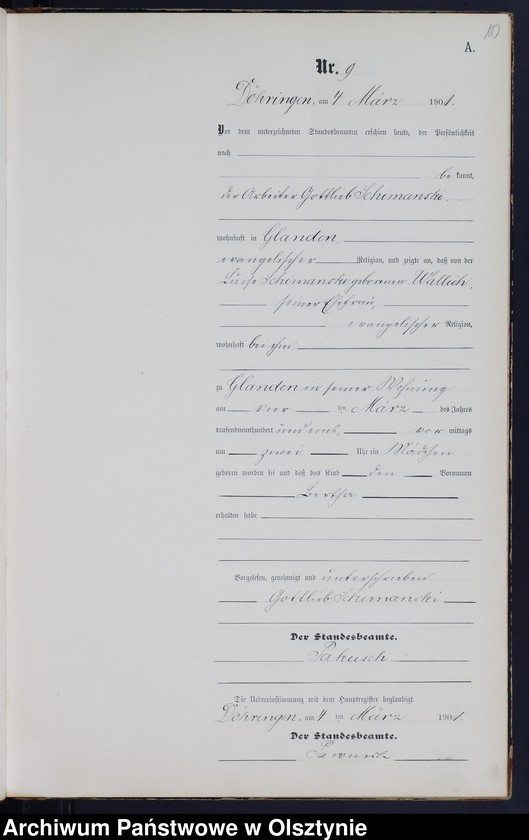 10
A.
Nr. 9
Döhringen, am 4 März 1901.
Vor dem unterzeichneten Standesbeamten erschien heute, der Persönlichkeit
nach
bekannt,
der Arbeiter Gottlieb Schimanski,
wohnhaft in Glanden,
evangelischer Religion, und zeigte an, daß von der
Luise Schimanski geborenen Wallich,
seiner Ehefrau,
evangelischer Religion,
wohnhaft bei ihm
zu Glanden in seiner Wohnung
am vier ten März des Jahres
tausendneunhundert und eins, vor mittags
um zwei Uhr ein Mädchen
geboren worden sei und daß das Kind den Vornamen
Bertha
erhalten habe
Vorgelesen, genehmigt und unterschrieben
Gottlieb Schimanski
Der Standesbeamte.
Sakusch
Die Uebereinstimmung mit dem Hauptregister beglaubigt.
Döhringen, am 4 ten März 1901.
Der Standesbeamte.
Archiwum Państwowe w Olsztynie